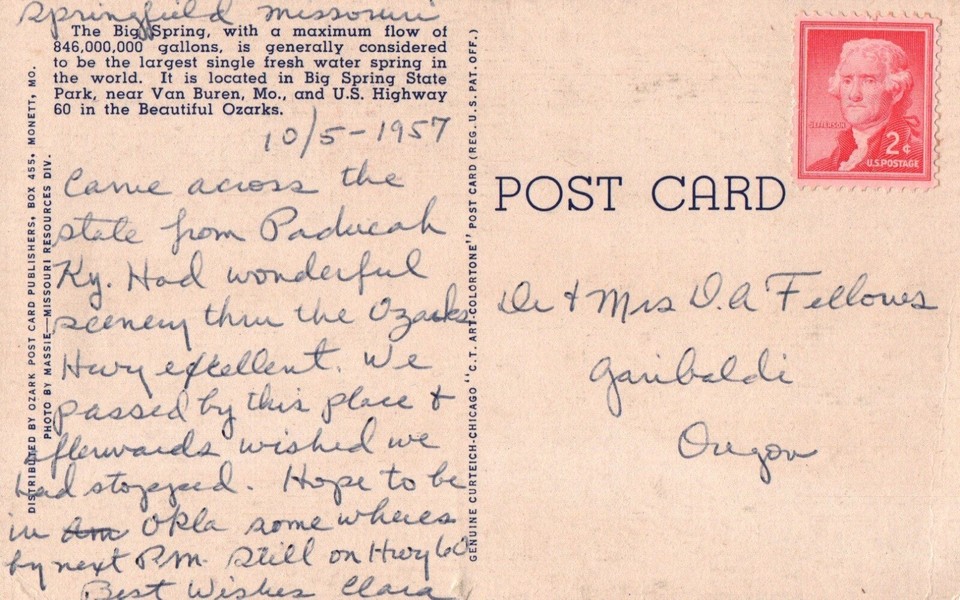 Springfield Missouri
The Big Spring, with a maximum flow of
846,000,000 gallons, is generally considered
to be the largest single fresh water spring in
the world. It is located in Big Spring State
Park, near Van Buren, Mo., and U.S. Highway
60 in the Beautiful Ozarks.
10/5-1957
Came across the
state from Paducah
Ky. Had wonderful
scenery thru the Ozarks
Hwy excellent. We
passed by this place &
afterwards wished we
had stopped. Hope to be
in Okla some wheres
by next P.M. Still on Hwy 60
Best Wishes Clara
DISTRIBUTED BY OZARK POST CARD PUBLISHERS, BOX 455, MONETT, MO.
PHOTO BY MASSIE—MISSOURI RESOURCES DIV.
GENUINE CURTEICH-CHICAGO "C.T. ART-COLORTONE" POST CARD (REG. U.S. PAT. OFF.)
POST CARD
JEFFERSON
2¢
U.S. POSTAGE
Dr & Mrs D.A Fellows
Garibaldi
Oregon